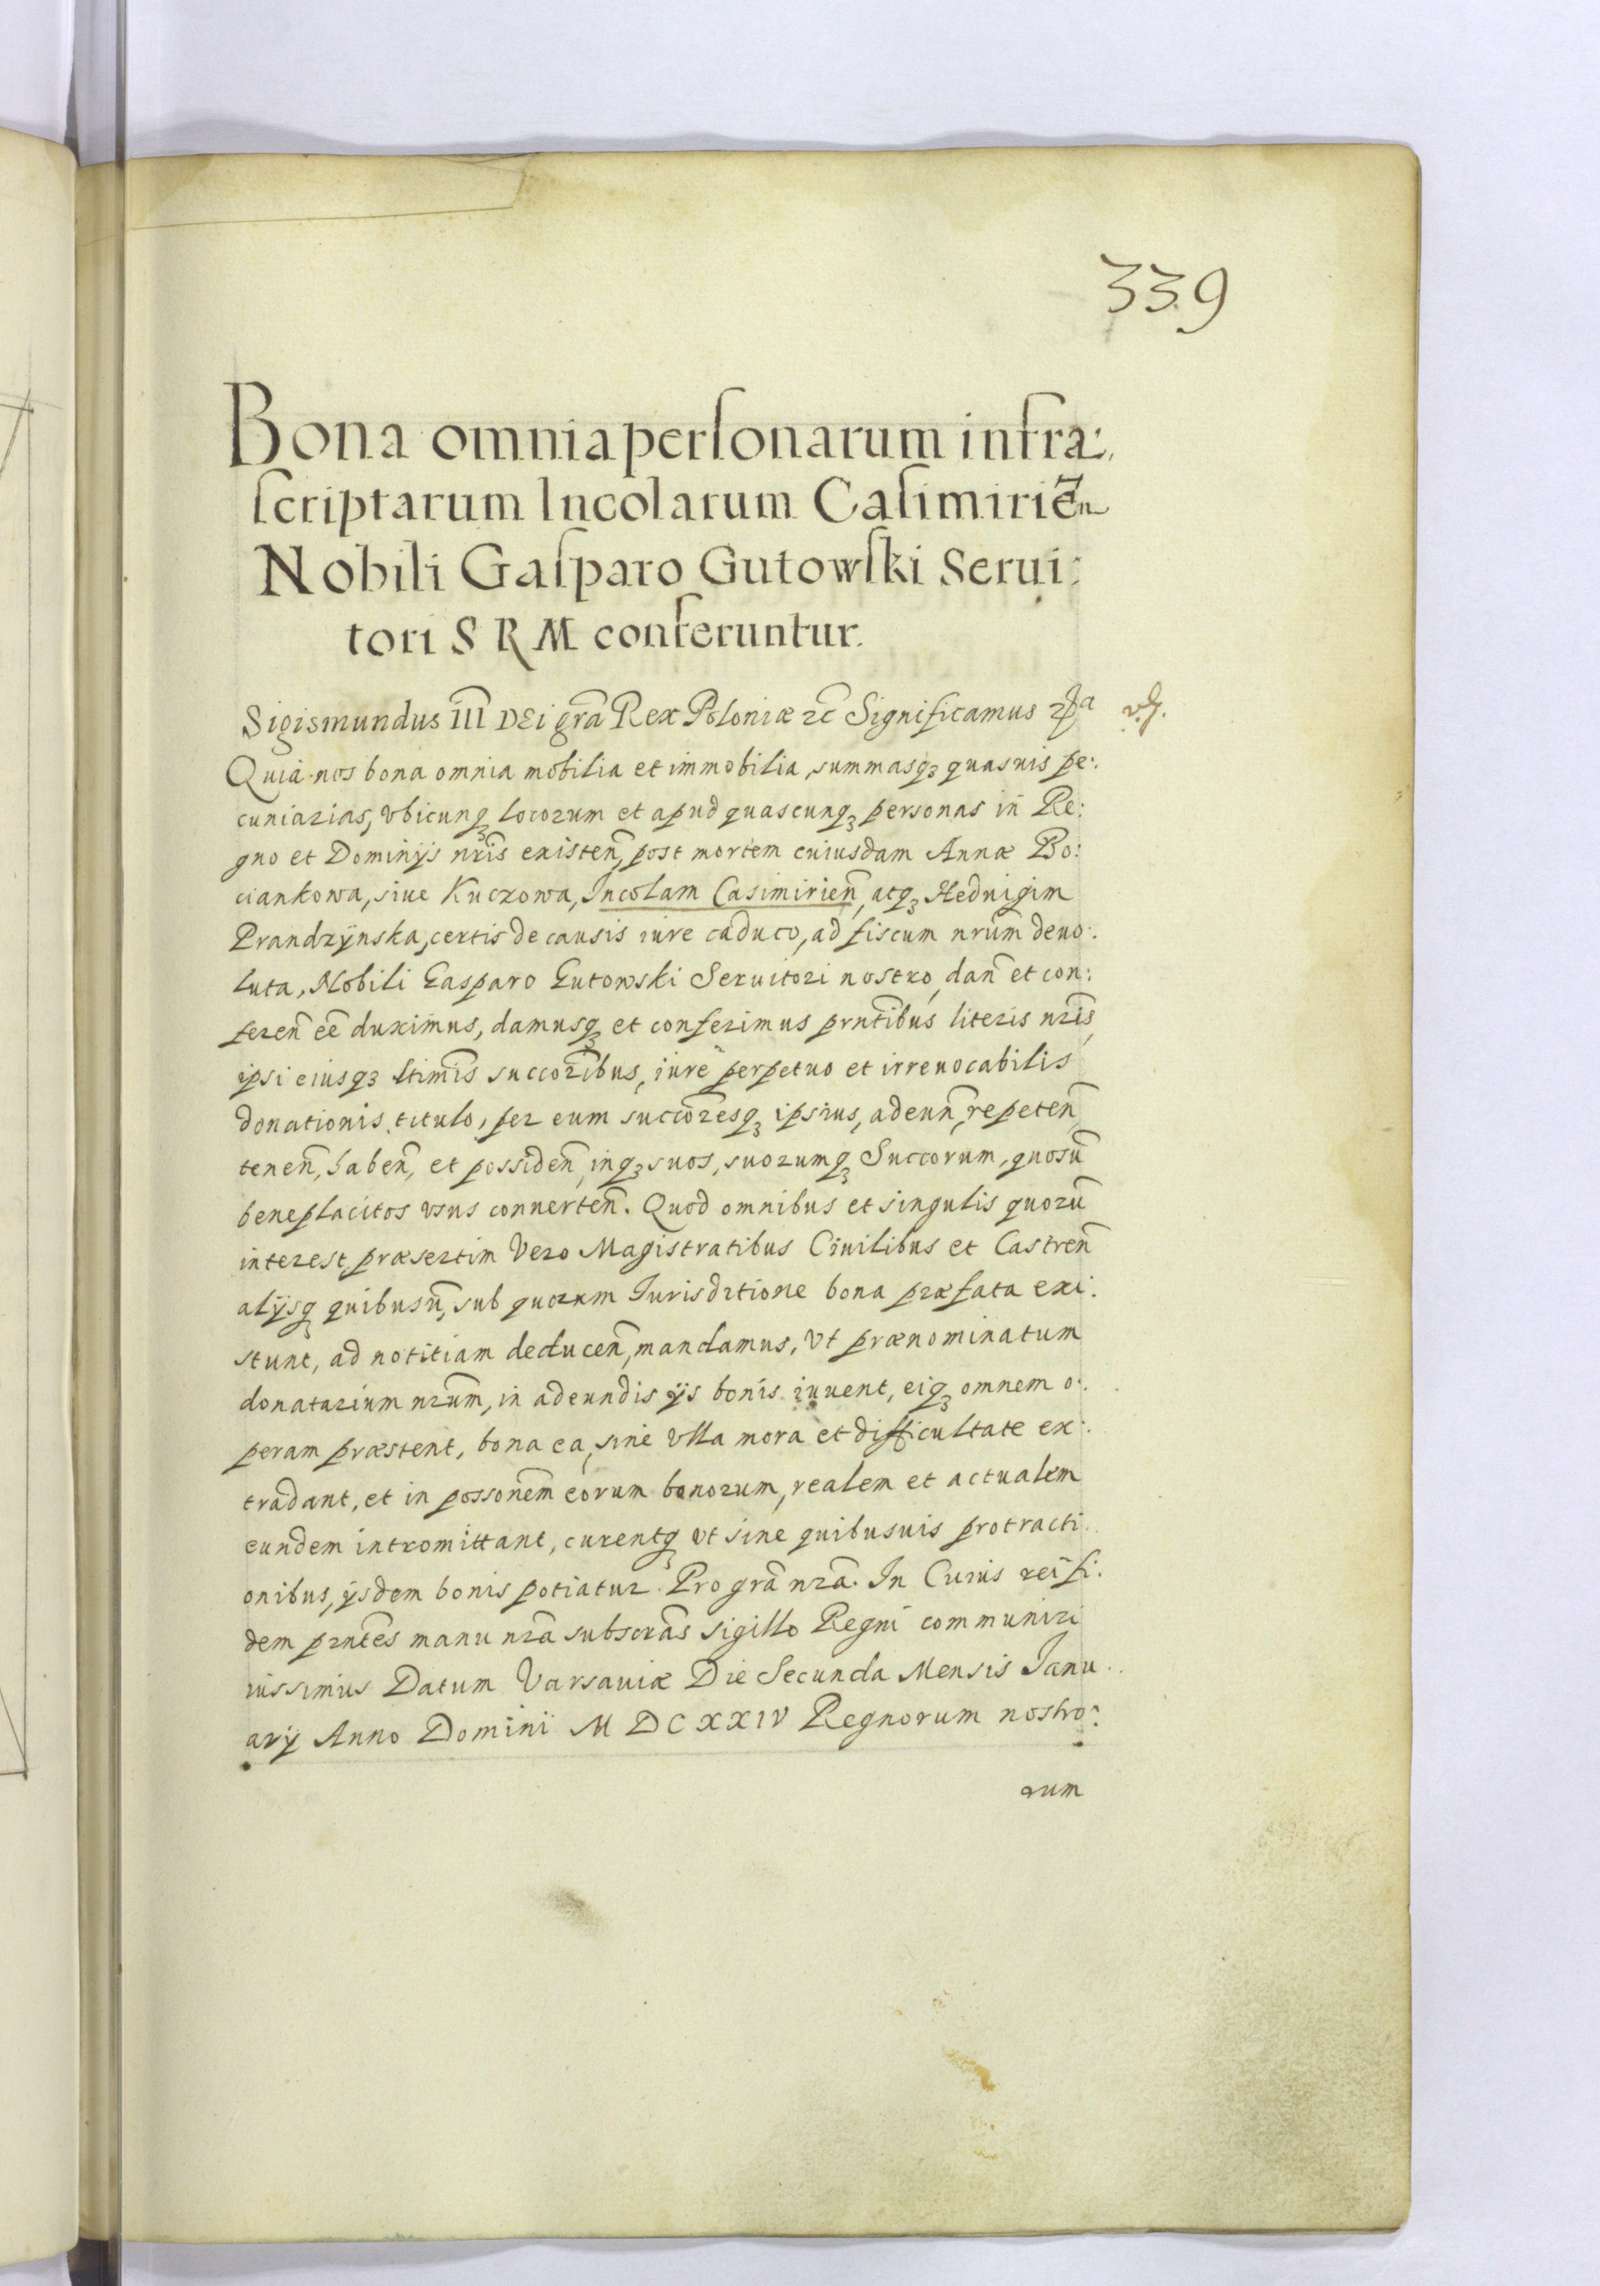 339
Bona omnia personarum infra:
scriptarum Incolarum Casimirien̄
Nobili Gasparo Gutowski Serui:
tori S R M conferuntur.
Sigismundus III DEi gr̄a Rex Poloniæ ⁊c̄ Significamus
Quia nos bona omnia mobilia et immobilia, summasq₃ quasuis pe:
cuniarias, vbicunq₃ locorum et apud quascunq₃ personas in Re:
gno et Dominijs nr̄is existen̄, post mortem cuiusdam Annæ Bo:
ciankowa, siue Kuczowa, Incolam Casimirien̄, atq₃ Heduigim
Prandzÿnska, certis de causis iure caduco, ad fiscum nrūm deuo:
luta, Nobili Gasparo Gutowski Seruitori nostro, dan̄ et con:
feren̄ eē duximus, damusq₃ et conferimus prn̄tibus literis nr̄is,
ipsi eiusq₃ ltimīs succor̄ibus, iure perpetuo et irreuocabilis
donationis titulo, per eum succōresq₃ ipsius, adeun̄, repeten̄,
tenen̄, haben̄, et possiden̄, inq₃ suos, suorumq₃ Succorum, quosū
beneplacitos vsus conuerten̄. Quod omnibus et singulis quorū
interest, præsertim Vero Magistratibus Ciuilibus et Castren̄
alijsq₃ quibusū, sub quorum Iurisdr̄tione bona præfata exi:
stunt, ad notitiam deducen̄, mandamus, Vt prænominatum
donatarium nrūm, in adeundis ijs bonis iuuent, eiq₃ omnem o:
peram præstent, bona ea, sine Vlla mora et difficultate ex:
tradant, et in possonēm eorum bonorum, realem et actualem
eundem intromittant, curentq₃ vt sine quibusuis protracti:
onibus, ijsdem bonis potiatur. Pro gr̄a nr̄a. In Cuius rei fi:
dem prn̄tes manu nr̄a subscrās sigillo Regni communiri
iussimus Datum Varsauiæ Die Secunda Mensis Ianu:
arij Anno Domini M DC XXIV Regnorum nostro:
rum